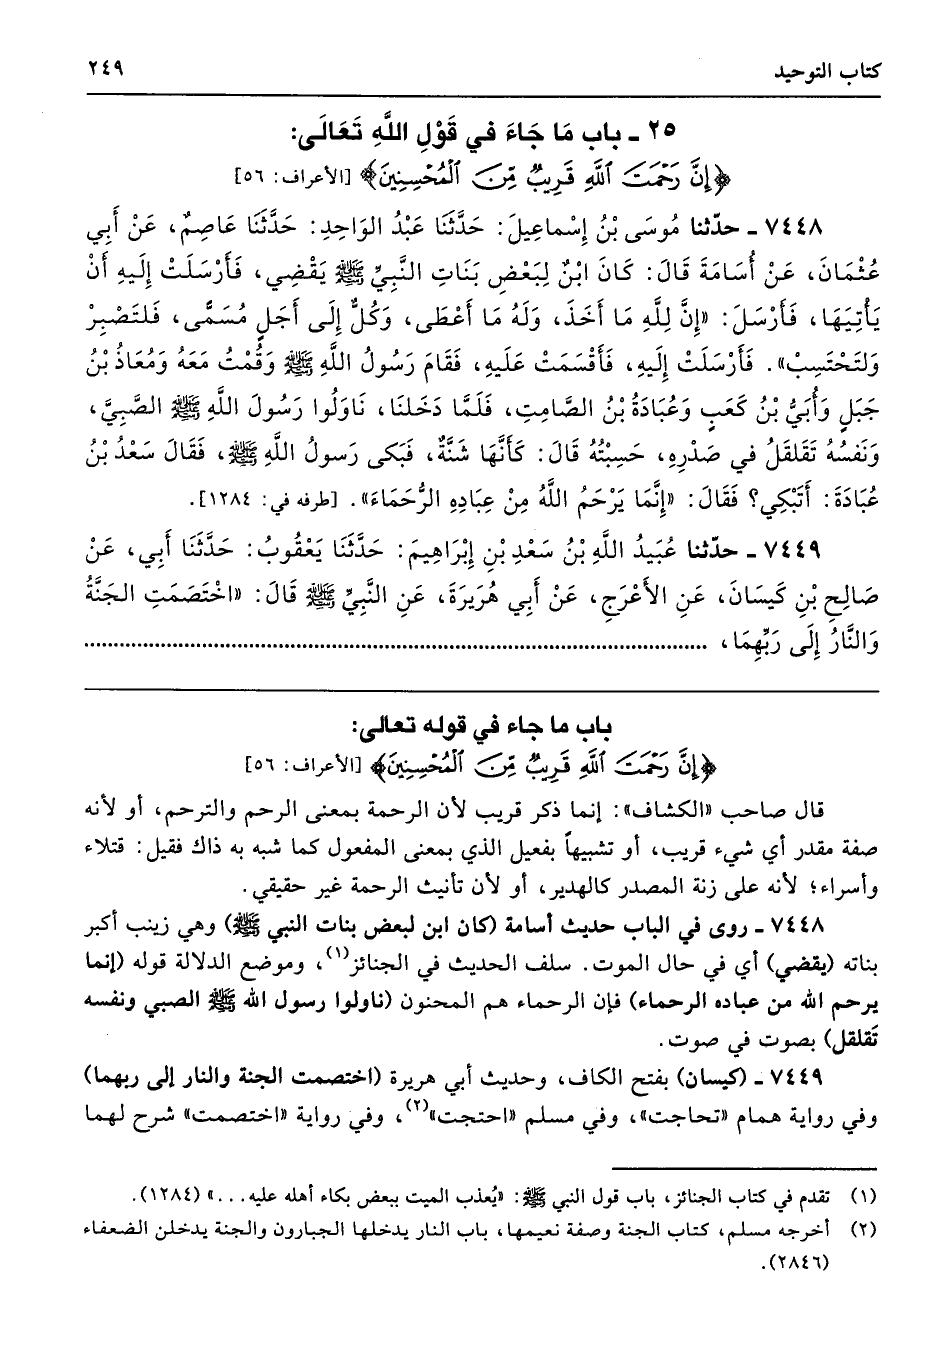 كتاب التوحيد ٢٤٩
٢٥ ـ باب مَا جَاءَ في قَوْلِ اللَّهِ تَعَالَى:
﴿إِنَّ رَحْمَتَ ٱللَّهِ قَرِيبٌ مِّنَ ٱلْمُحْسِنِينَ﴾ [الأعراف: ٥٦]
٧٤٤٨ ـ حدّثنا مُوسَى بْنُ إِسْماعِيلَ: حَدَّثَنَا عَبْدُ الوَاحِدِ: حَدَّثَنَا عَاصِمٌ، عَنْ أَبِي
عُثْمَانَ، عَنْ أُسَامَةَ قَالَ: كَانَ ابْنٌ لِبَعْضِ بَنَاتِ النَّبِيِّ ﷺ يَقْضِي، فَأَرْسَلَتْ إِلَيهِ أَنْ
يَأْتِيَهَا، فَأَرْسَلَ: «إِنَّ لِلَّهِ مَا أَخَذَ، وَلَهُ مَا أَعْطَى، وَكُلٌّ إِلَى أَجَلٍ مُسَمًّى، فَلتَصْبِرْ
وَلتَحْتَسِبْ». فَأَرْسَلَتْ إِلَيهِ، فَأَقْسَمَتْ عَلَيهِ، فَقَامَ رَسُولُ اللَّهِ ﷺ وَقُمْتُ مَعَهُ وَمُعَاذُ بْنُ
جَبَلٍ وَأُبَيُّ بْنُ كَعَبٍ وَعُبَادَةُ بْنُ الصَّامِتِ، فَلَمَّا دَخَلنَا، نَاوَلُوا رَسُولَ اللَّهِ ﷺ الصَّبِيَّ،
وَنَفسُهُ تَقَلقَلُ في صَدْرِهِ، حَسِبْتُهُ قَالَ: كَأَنَّهَا شَنَّةٌ، فَبَكى رَسولُ اللَّهِ ﷺ، فَقَالَ سَعْدُ بْنُ
عُبَادَةَ: أَتَبْكِي؟ فَقَالَ: «إِنَّمَا يَرْحَمُ اللَّهُ مِنْ عِبَادِهِ الرُّحَمَاءَ». [طرفه في: ١٢٨٤].
٧٤٤٩ ـ حدّثنا عُبَيدُ اللَّهِ بْنُ سَعْدِ بْنِ إِبْرَاهِيمَ: حَدَّثَنَا يَعْقُوبُ: حَدَّثَنَا أَبِي، عَنْ
صَالِحِ بْنِ كَيسَانَ، عَنِ الأَعْرَجِ، عَنْ أَبِي هُرَيرَةَ، عَنِ النَّبِيِّ ﷺ قَالَ: «اخْتَصَمَتِ الجَنَّةُ
وَالنَّارُ إِلَى رَبِّهِمَا، ..............................................................
باب ما جاء في قوله تعالى:
﴿إِنَّ رَحْمَتَ ٱللَّهِ قَرِيبٌ مِّنَ ٱلْمُحْسِنِينَ﴾ [الأعراف: ٥٦]
قال صاحب «الكشاف»: إنما ذكر قريب لأن الرحمة بمعنى الرحم والترحم، أو لأنه
صفة مقدر أي شيء قريب، أو تشبيهاً بفعيل الذي بمعنى المفعول كما شبه به ذاك فقيل: قتلاء
وأسراء؛ لأنه على زنة المصدر كالهدير، أو لأن تأنيث الرحمة غير حقيقي.
٧٤٤٨ ـ روى في الباب حديث أسامة (كان ابن لبعض بنات النبي ﷺ) وهي زينب أكبر
بناته (يقضي) أي في حال الموت. سلف الحديث في الجنائز(١)، وموضع الدلالة قوله (إنما
يرحم الله من عباده الرحماء) فإن الرحماء هم المحنون (ناولوا رسول الله ﷺ الصبي ونفسه
تَقلقل) بصوت في صوت.
٧٤٤٩ ـ (كيسان) بفتح الكاف، وحديث أبي هريرة (اختصمت الجنة والنار إلى ربهما)
وفي رواية همام «تحاجت»، وفي مسلم «احتجت»(٢)، وفي رواية «اختصمت» شرح لهما
(١) تقدم في كتاب الجنائز، باب قول النبي ﷺ: «يُعذب الميت ببعض بكاء أهله عليه...» (١٢٨٤).
(٢) أخرجه مسلم، كتاب الجنة وصفة نعيمها، باب النار يدخلها الجبارون والجنة يدخلن الضعفاء
(٢٨٤٦).